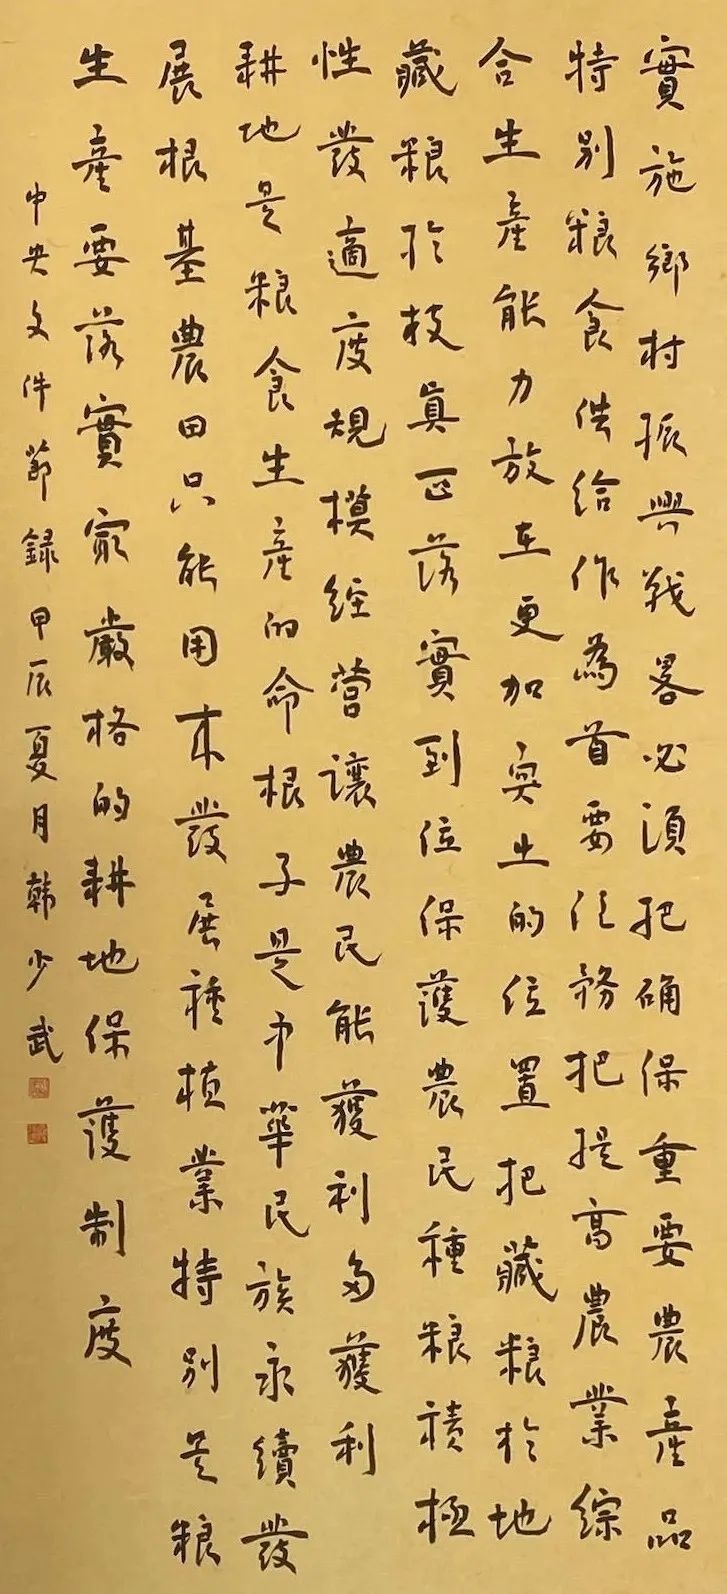 實施鄉村振興戰畧必須把确保重要農產品
特别粮食供给作為首要任務把提高農業綜
合生產能力放在更加突出的位置把藏粮於地
藏粮於技真正落實到位保護農民種粮積極
性發適度規模經營讓農民能獲利多獲利
耕地是粮食生產的命根子是中華民族永續發
展根基農田只能用来發展種植業特别是粮
生產要落實最嚴格的耕地保護制度
中央文件節録甲辰夏月韩少武